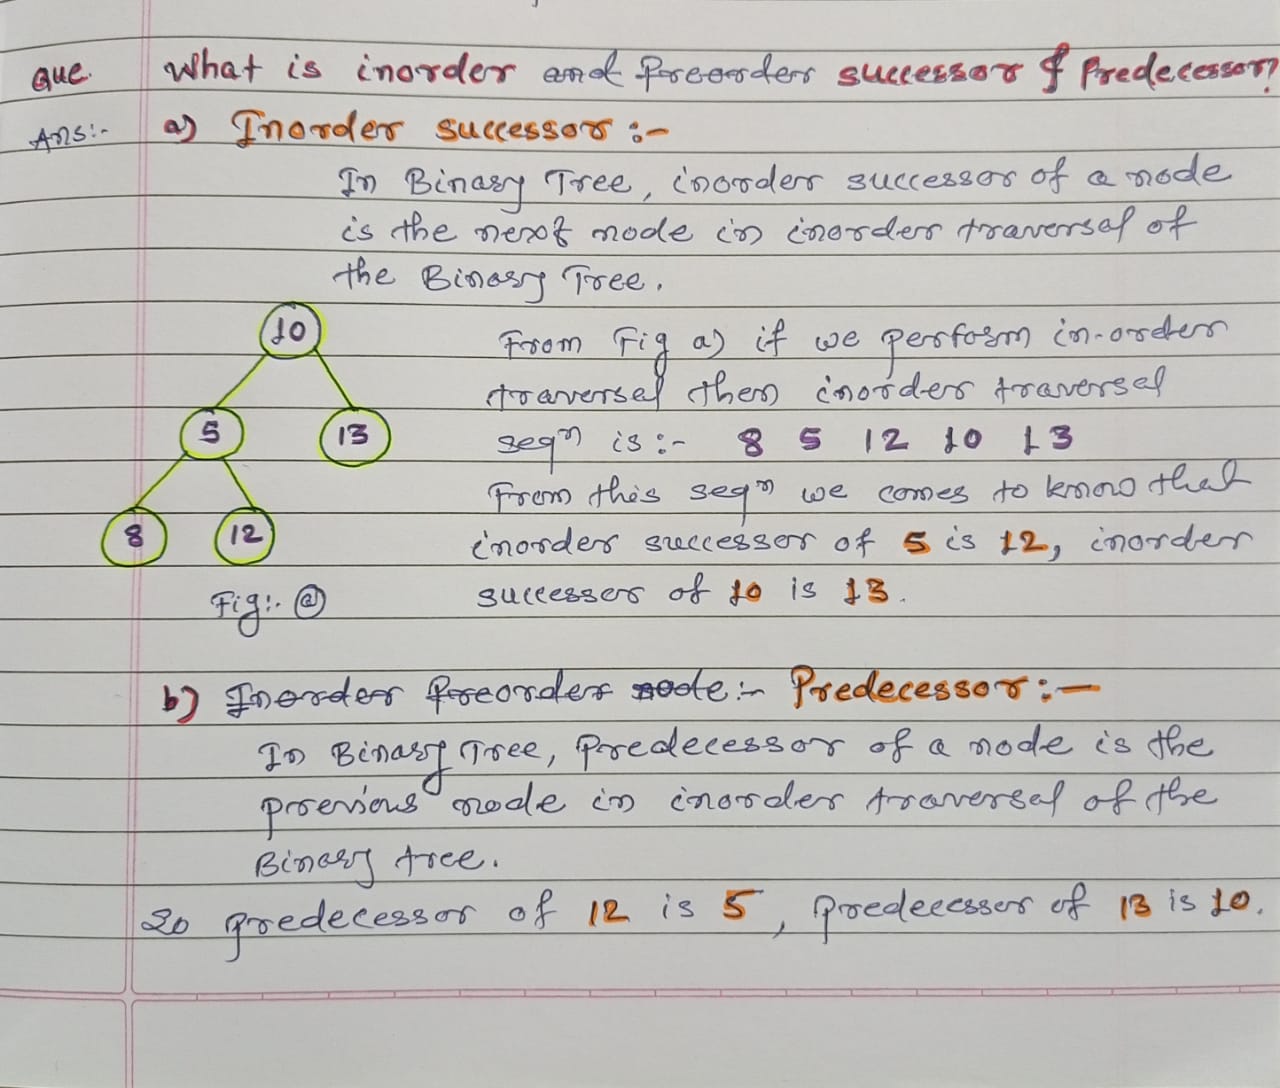 Que. What is inorder and Preorder successor & Predecessor?
Ans:- a) Inorder successor :-
In Binary Tree, inorder successor of a node
is the next node in inorder traversal of
the Binary Tree.
10
5 13
8 12
Fig:. a
From Fig a) if we perform in-order
traversal then inorder traversal
seqn is :- 8 5 12 10 13
From this seqn we comes to know that
inorder successor of 5 is 12, inorder
successor of 10 is 13.
b) Inorder Preorder node :- Predecessor :-
In Binary Tree, Predecessor of a node is the
previous node in inorder traversal of the
Binary tree.
So predecessor of 12 is 5, Predecessor of 13 is 10.